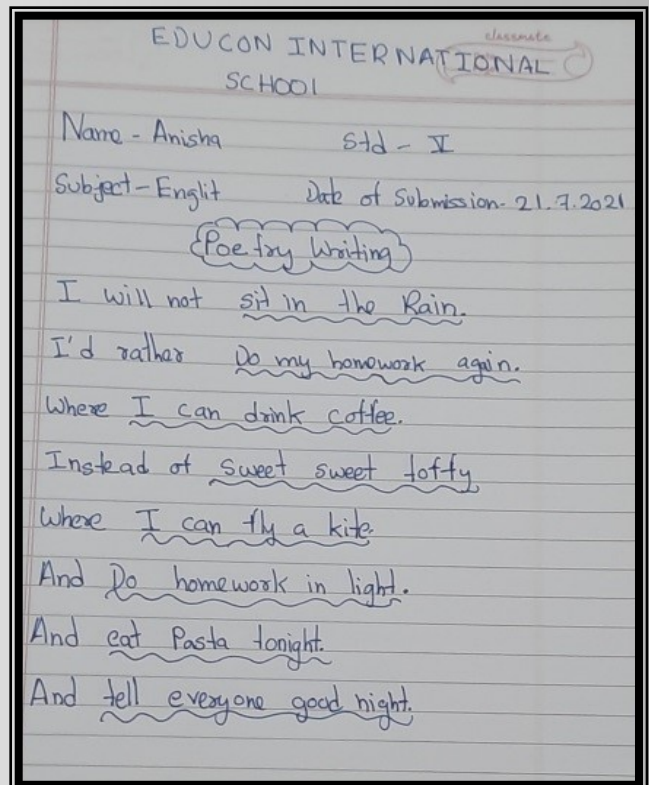 classmate
EDUCON INTERNATIONAL
SCHOOL
Name - Anisha Std - V
Subject - Englit Date of Submission - 21.7.2021
Poetry Writing
I will not sit in the Rain.
I'd rather Do my homework again.
Where I can drink coffee.
Instead of sweet sweet toffy
Where I can fly a kite.
And Do homework in light.
And eat Pasta tonight.
And tell everyone good night.